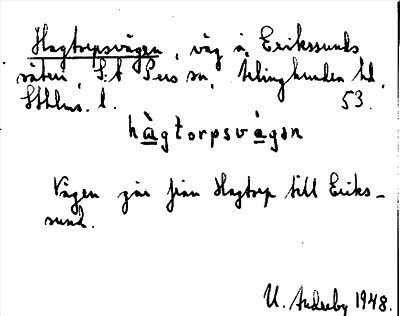 Hagtorpsvägen, väg å Erikssunds
säteri, S:t Pers sn, Ärlinghundra hd,
Sthlms. l. 53.
hàgtorpsvàgən
Vägen går från Hagtorp till Eriks-
sund.
U. 1948.